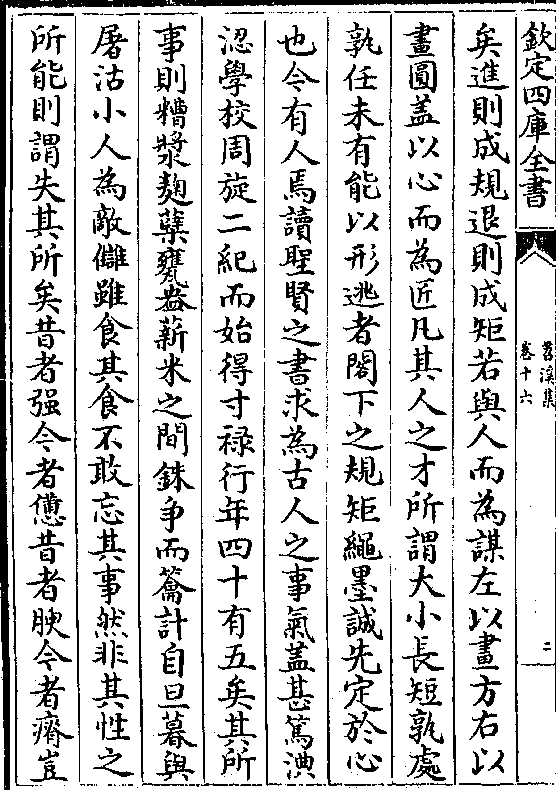 欽定四庫全書
苕溪集
卷十六
二
矣進則成規退則成矩若與人而為謀左以畫方右以
畫圓盖以心而為匠凡其人之才所謂大小長短孰處
孰任未有能以形逃者閣下之規矩繩墨誠先定於心
也今有人焉讀聖賢之書求為古人之事氣盖甚篤㳠
涊學校周旋二紀而始得寸禄行年四十有五矣其所
事則糟漿麹糱甕盎薪米之間銖争而籥計自旦暮與
屠沽小人為敵讎雖食其食不敢忘其事然非其性之
所能則謂失其所矣昔者强今者憊昔者腴今者瘠豈